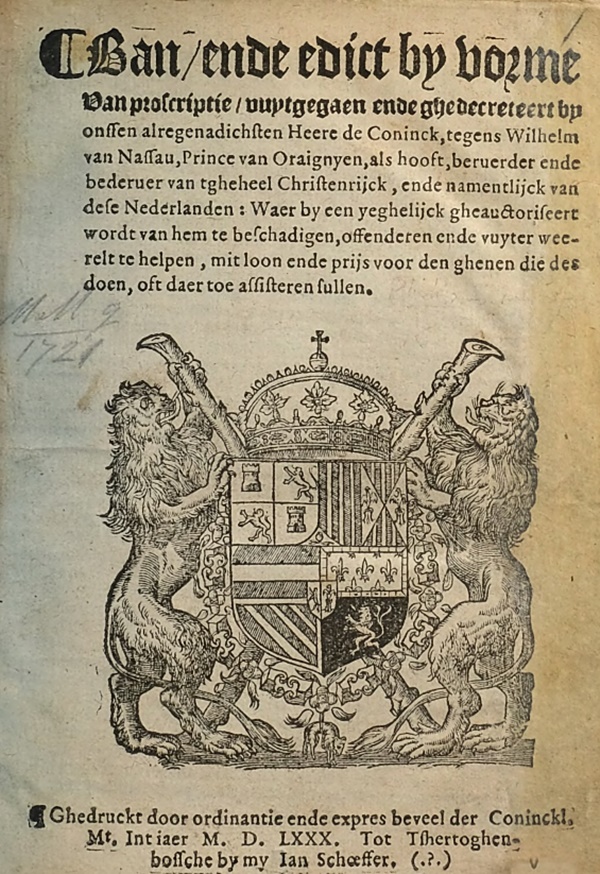 ¶Ban/ende edict by vorme
Van proscriptie/vuytgegaen ende ghedecreteert by
onſſen alregenadichſten Heere de Coninck,tegens Wilhelm
van Naſſau,Prince van Oraignyen,als hooft,beruerder ende
bederuer van tgheheel Chriſtenrijck, ende namentlijck van
deſe Nederlanden : Waer by een yeghelijck gheauctoriſeert
wordt van hem te beſchadigen,offenderen ende vuyter wee-
relt te helpen, mit loon ende prijs voor den ghenen die des
doen, oft daer toe aſſiſteren ſullen.
1721
¶ Ghedruckt door ordinantie ende expres beveel der Coninckl.
Mt. Int iaer M. D. LXXX. Tot Tſhertoghen-
boſſche by my Ian Schœffer. (.?.)